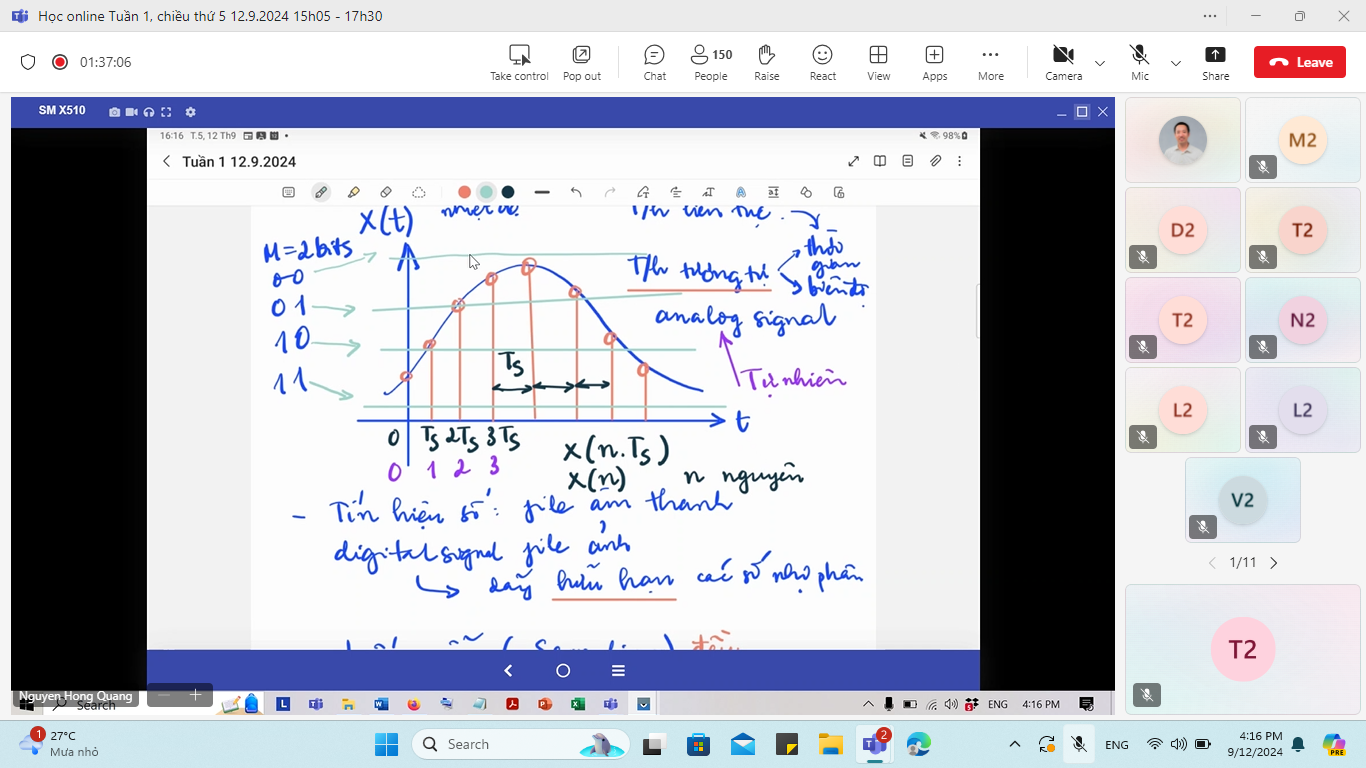 Học online Tuần 1, chiều thứ 5 12.9.2024 15h05 - 17h30
01:37:06
Take control
Pop out
Chat
150
People
Raise
React
View
Apps
More
Camera
Mic
Share
Leave
SM X510
16:16 T.5, 12 Th9
98%
Tuần 1 12.9.2024
X(t)
nhiệt độ
M=2bits
00
01
10
11
T/h tương tự
thời gian
biên độ
analog signal
Tự nhiên
Ts
t
0 Ts 2Ts 3Ts
0 1 2 3
x(n.Ts)
x(n) n nguyên
- Tín hiệu số: file âm thanh
digital signal file ảnh
dãy hữu hạn các số nhị phân
đều
M2
D2
T2
T2
N2
L2
L2
V2
1/11
T2
Nguyen Hong Quang
Search
ENG
4:16 PM
1
27°C
Mưa nhỏ
Search
2
PRE
ENG
4:16 PM
9/12/2024